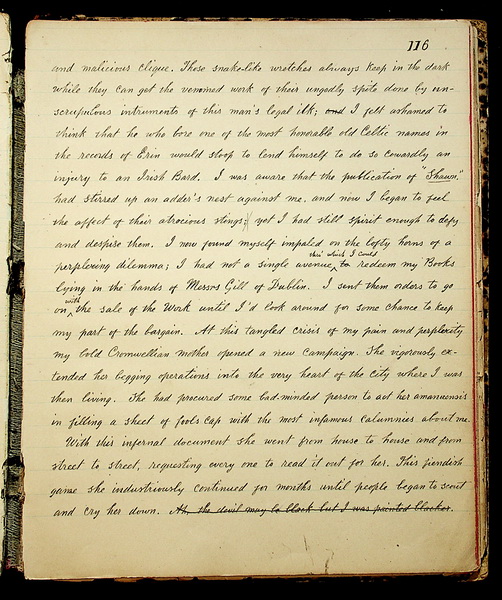 116
and malicious clique. Those snake-like wretches always keep in the dark
while they can get the venomed work of their ungodly spite done by un-
scrupulous intruments of this man's legal ilk; and I felt ashamed to
think that he who bore one of the most honorable old Celtic names in
the records of Erin would stoop to lend himself to do so cowardly an
injury to an Irish Bard. I was aware that the publication of "Shawn"
had stirred up an adder's nest against me, and now I began to feel
the affect of their atrocious stings; yet I had still spirit enough to defy
and despise them. I now found myself impaled on the lofty horns of a
perplexing dilemma; I had not a single avenue thro' which I could to redeem my Books
lying in the hands of Messrs Gill of Dublin. I sent them orders to go
on with the sale of the Work until I'd look around for some chance to keep
my part of the bargain. At this tangled crisis of my pain and perplexity
my bold Cromwellian mother opened a new campaign. She vigorously ex-
tended her begging operatins into the very heart of the city where I was
then living. She had procured some bad-minded person to act her amanuensis
in filling a sheet of fools cap with the most infamous calumnies about me.
With this infernal document she went from house to house and from
street to street, requesting every one to read it out for her. This fiendish
game she industriously continued for months until people began to scout
and cry her down. Ah, the devil may be black but I was painted blacker.